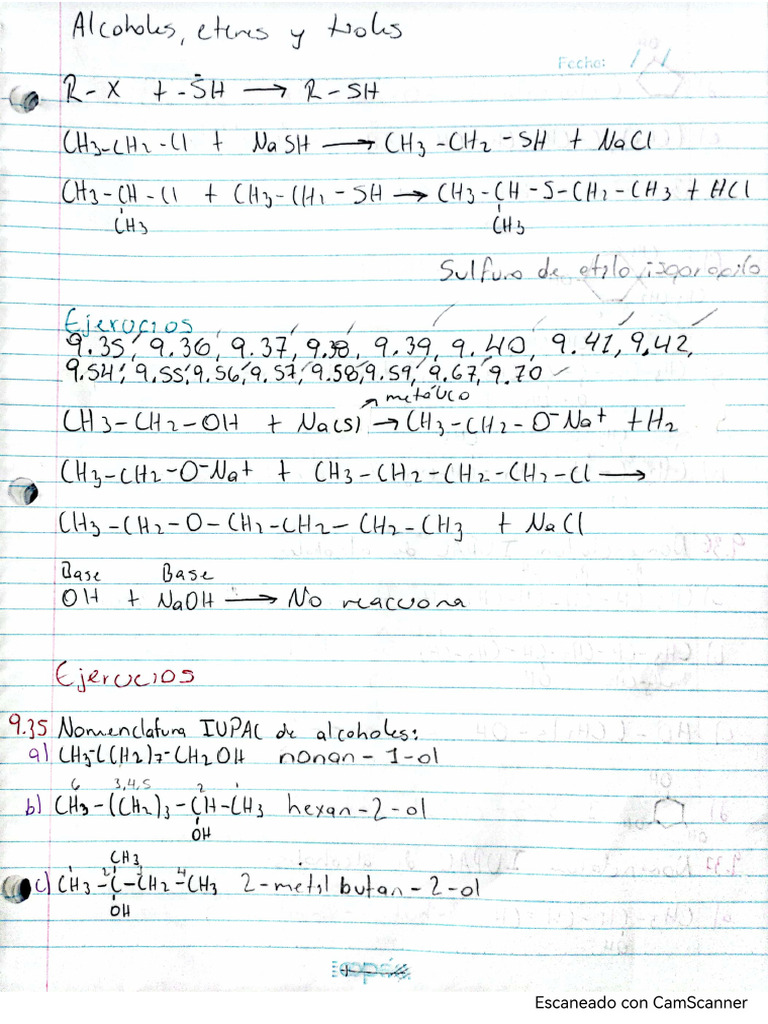 Alcoholes, eteres y tioles
Fecha: / /
R-X + -S̄H → R-SH
CH3-CH2-Cl + NaSH → CH3-CH2-SH + NaCl
CH3-CH-Cl + CH3-CH2-SH → CH3-CH-S-CH2-CH3 + HCl
CH3 CH3
Sulfuro de etilo isopropilo
Ejercicios
9.35, 9.36, 9.37, 9.38, 9.39, 9.40, 9.41, 9.42,
9.54, 9.55, 9.56, 9.57, 9.58, 9.59, 9.67, 9.70
metálico
CH3-CH2-OH + Na(s) → CH3-CH2-O-Na+ + H2
CH3-CH2-O-Na+ + CH3-CH2-CH2-CH2-Cl →
CH3-CH2-O-CH2-CH2-CH2-CH3 + NaCl
Base Base
OH + NaOH → No reacciona
Ejercicios
9.35 Nomenclatura IUPAC de alcoholes:
a) CH3-(CH2)7-CH2OH nonan-1-ol
6 3,4,5 2 1
b) CH3-(CH2)3-CH-CH3 hexan-2-ol
OH
CH3
1 2 3 4
c) CH3-C-CH2-CH3 2-metil butan-2-ol
OH
Escaneado con CamScanner